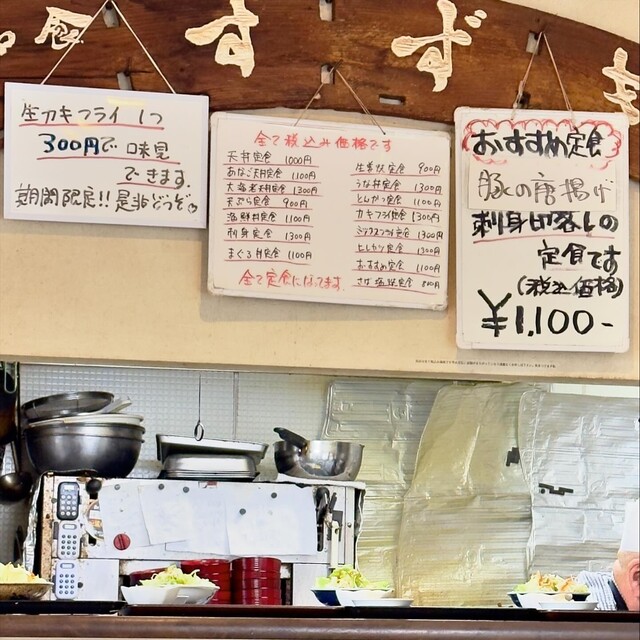 食 すずき
生カキフライ 1つ
300円で味見
できます。
期間限定!!是非どうぞ。
全て税込み価格です
天丼定食 1000円
あなご天丼定食 1100円
大海老天丼定食 1300円
天ぷら定食 900円
海鮮丼定食 1100円
刺身定食 1300円
まぐろ丼定食 1100円
生姜焼定食 900円
うな丼定食 1300円
とんかつ定食 1100円
カキフライ定食 1300円
ミックスフライ定食 1300円
ヒレカツ定食 1300円
おすすめ定食 1100円
さば塩焼定食 800円
全て定食になってます
おすすめ定食
豚の唐揚げ
刺身切落しの
定食です
(税込価格)
¥1,100-